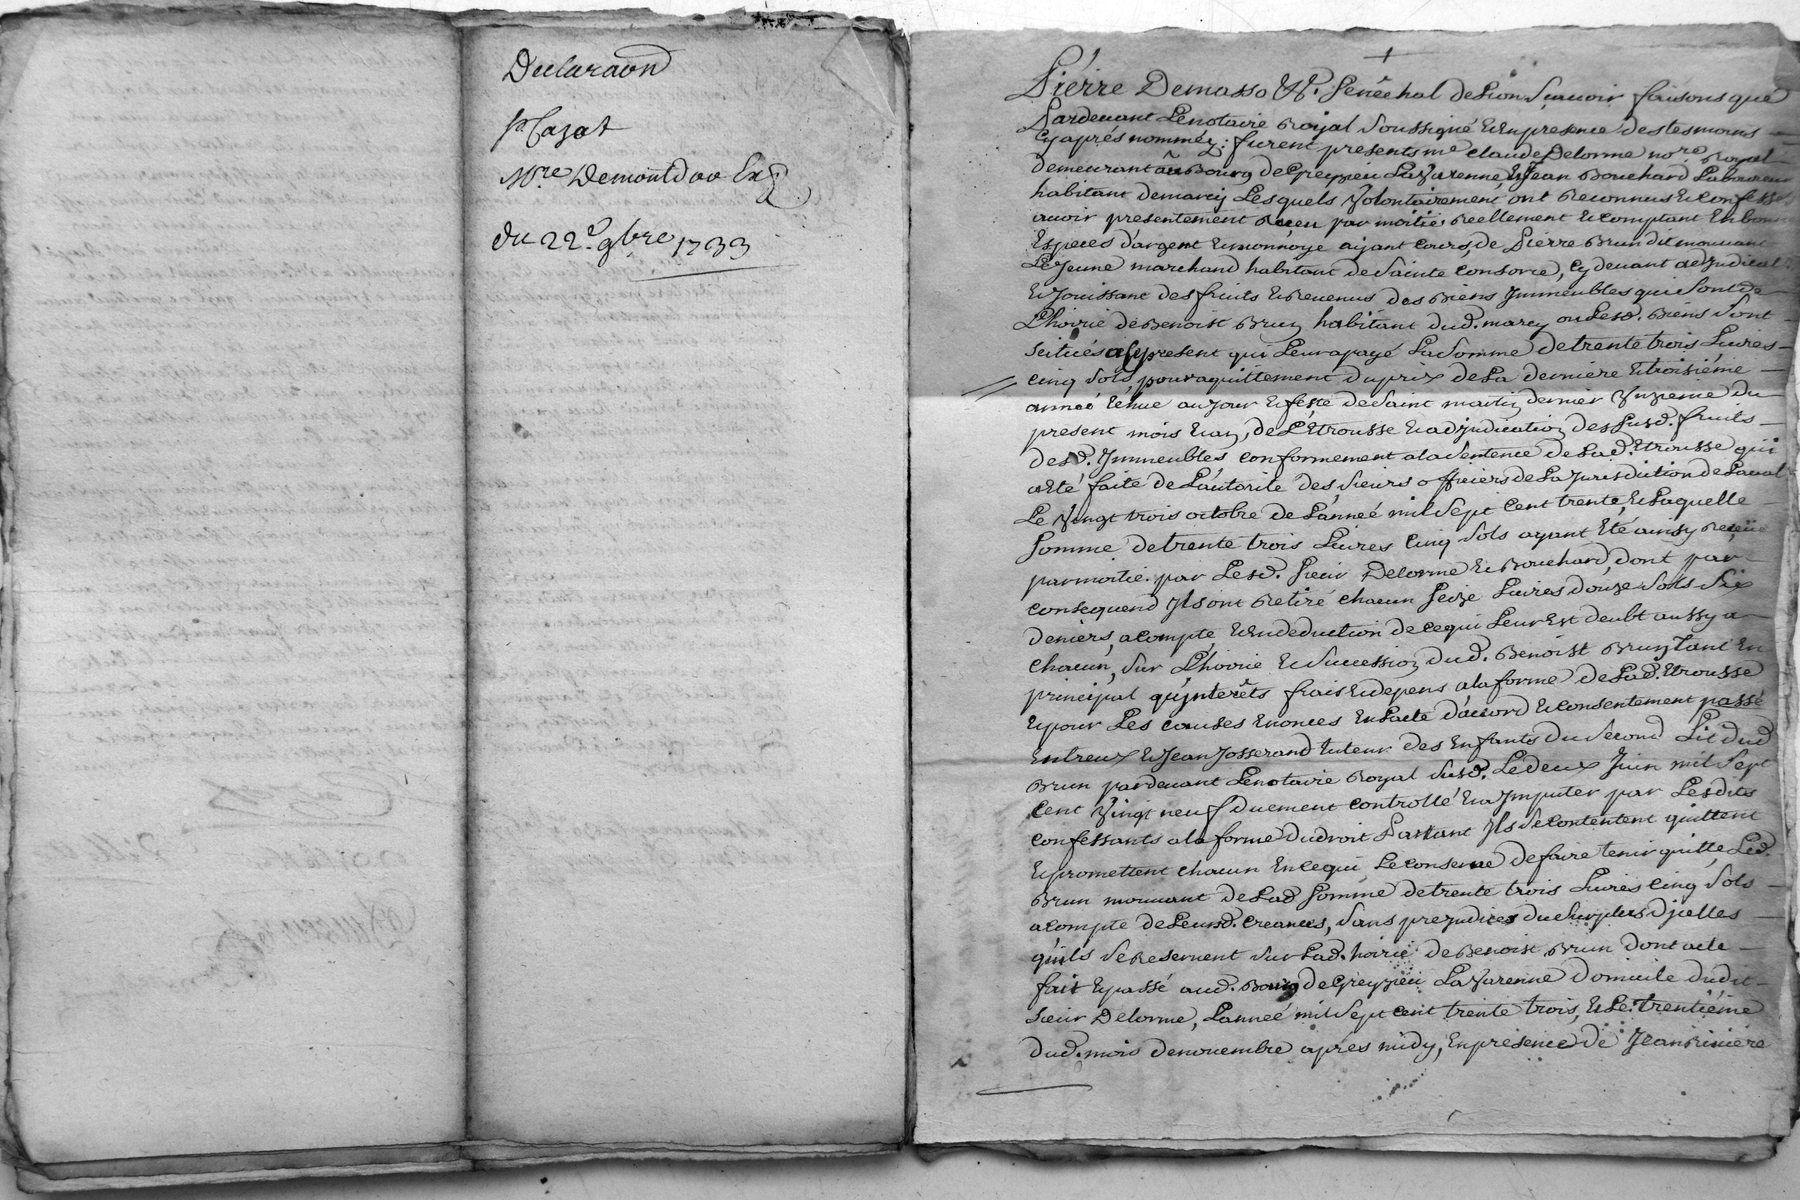 Declaraôn
Sr Cazot
Mre Demontdor
du 22e. 9bre 1733
Piérre Demasso &c. Sénêchal de Lion Sçavoir faisons qué
Pardevant Lenotaire Royal Soussigné & Enpresence des tesmoins
Cyaprés nomméz: furent presents me claude Delorme nore. Royal
demeurant au Bourg de Greyzieu La Varenne & Jean Bouchard Laboureur
habitant demarcy Lesquels Volontairement ont Reconnus & confessé
avoir presentement Receu par moitié Reellement & comptant En bonnes
Especes d'argent & monnoye aÿant cours, de Pierre Brun dit mouvant
LeJeune marchand habitant de Sainte Consorce, cy devant adjudicat.
& Jouissant des fruits & Revenus des Biens Jmmeubles qui Sont de
L'hoirié de Benoist Brun habitant dud. marcy ou Lesd. Biens Sont
Scitués present qui Leur apayé La Somme de trente trois Livres
cinq Sols, pour aquittement du prix de La derniere & troisiéme
anneé Echue au Jour & feste de Saint martin dernier Vnzieme du
present mois & an, de L'Etrousse & adjudication des Susd. fruits
desd. Jmmeubles conformement ala Sentence de Lad. Etrousse qui
a Eté faite de L'autorité des Sieurs officiers de La Jurisdiction de Laval
Le Vingt trois octobre de L'anneé mil Sept Cent trente, & Laquelle
Somme de trente trois Livres Cinq Sols ayant Eté ainsy Receüe
par moitié par Lesd. Sieur Delorme & Bouchard, dont par
consequend Jls ont Retiré chacun Seize Livres douze Sols Six
deniers, acompte & Endeduction de cequi Leur Est deubt aussy a
chacun, Sur L'hoirie & Succession dud. Benoist Brun tant En
principal qu'jnterêts frais & depens ala forme de Lad. Etrousse
& pour Les causes Enoncés En Lacte d'acord & consentement passé
Entreux & Jean Josserand tuteur des Enfants du Second Lit dud
Brun pardevant Lenotaire Royal Susd. Le deux Juin mil Sept
Cent Vingt neuf duement controllé & a Jmputer par Lesdits
confessants ala forme du droit Partant Jls Se contentent quittent
& promettent chacun En cequi Le conserne de faire tenir quitte Led.
Brun mouvant de Lad Somme de trente trois Livres Cinq Sols
acompte de Leursd. creances, Sans prejudices du Surplus d'jcelles
qu'ils Se Reservent Sur Lad. hoirie de Benoist Brun dont acte
fait & passé aud. Bourg de Greyzieu La Varenne domicile dudit
Sieur Delorme, L'anneé mil Sept cent trente trois, & Le trentiéme
dud. mois de novembre apres midy, En présence de Jean Riviére